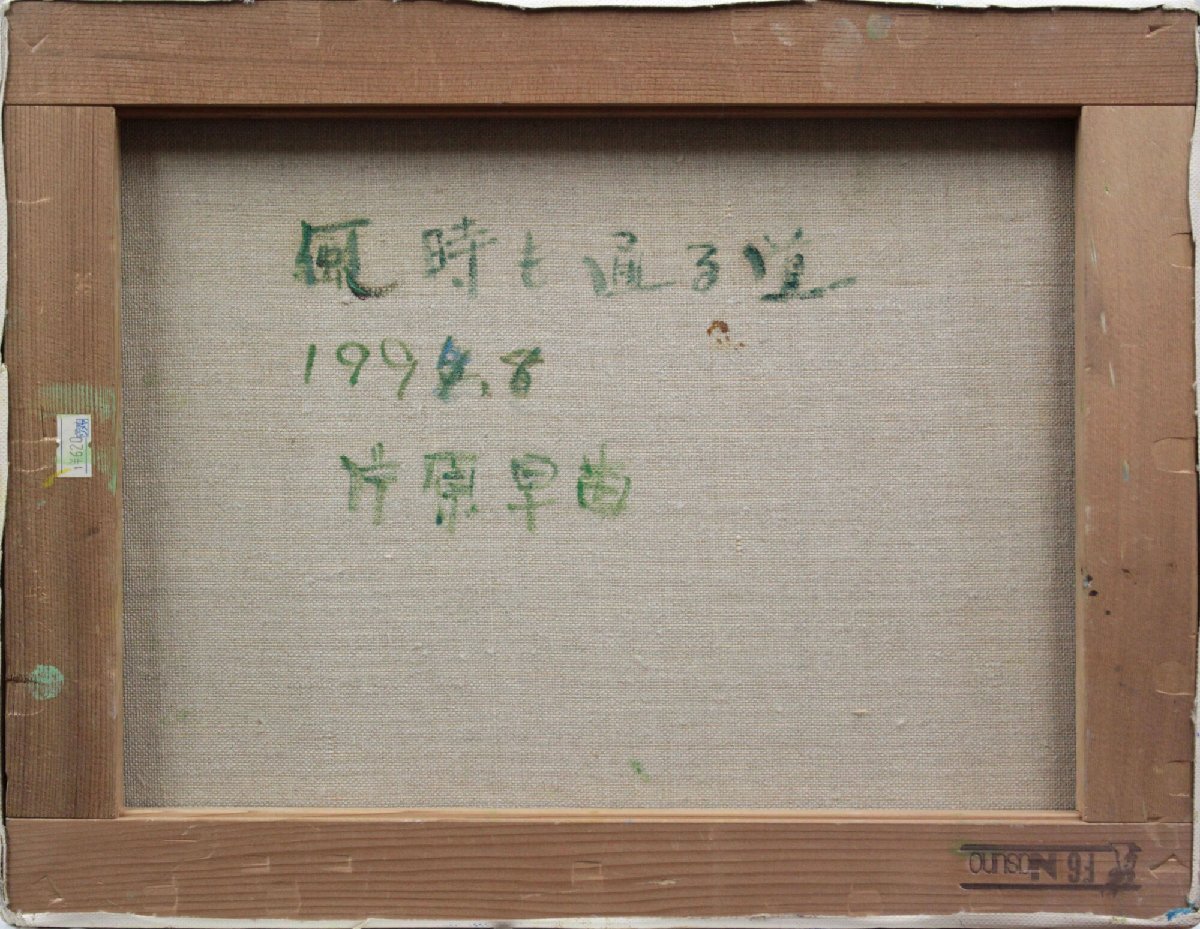 風 時も通る道
199 . 8
片原早苗
¥620
F6